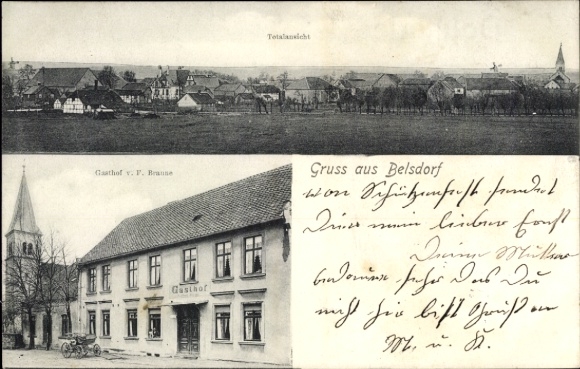 Totalansicht
Gasthof v. F. Braune
Gasthof
Gruss aus Belsdorf
von Schützenfest sendet
Dir mein lieber Ernst
Deine Mutter
bedaure sehr das Du
nicht hier bist Gruß an
M. u. K.